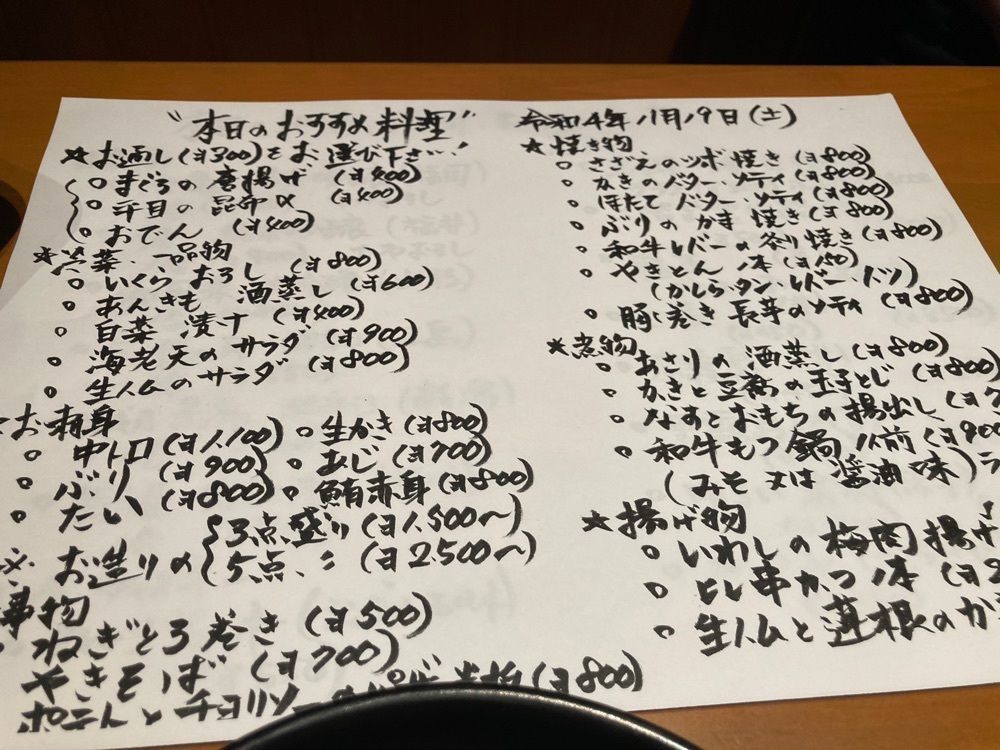 "本日のおすすめ料理"
☆お通し(¥300)をお選び下さい!
○ まぐろの唐揚げ (¥400)
○ 平目の昆布〆 (¥400)
○ おでん (¥400)
☆ 前菜、一品物
○ いくらおろし (¥800)
○ あんきも 酒蒸し (¥600)
○ 白菜 漬け (¥400)
○ 海老天のサラダ (¥900)
○ 生ハムのサラダ (¥800)
☆お刺身
○ 中トロ (¥1,100) ○ 生かき (¥800)
○ ぶり (¥900) ○ あじ (¥700)
○ たい (¥800) ○ 鮪赤身 (¥800)
※ お造りの 3点盛り (¥1,500〜)
5点 〃 (¥2,500〜)
事物
ねぎとろ巻き (¥500)
やきそば (¥700)
ポテトとチョリソー (¥800)
令和4年 11月19日(土)
☆ 焼き物
○ さざえのツボ焼き (¥800)
○ かきのバター・ソティ (¥800)
○ ほたてバター・ソティ (¥800)
○ ぶりのかま焼き (¥800)
○ 和牛レバーの炙り焼き (¥800)
○ やきとん 1本 (¥150)
(かしら・タン・レバー・ハツ)
○ 豚巻き長芋のソティ (¥800)
☆煮物
○ あさりの酒蒸し (¥800)
○ かきと豆腐の玉子とじ (¥800)
○ なすとおもちの揚出し (¥
○ 和牛もつ鍋 1人前 (¥900
(みそ又は醤油味)
☆揚げ物
○ いわしの梅肉揚げ
○ ヒレ串かつ 1本 (¥
○ 生ハムと蓮根のか